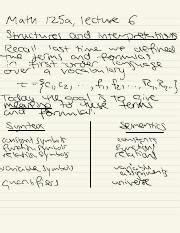 Math 125a, lecture 6
Structures and interpretations
Recall last time we defined
the terms and formulas
in first order language
over a vocabulary
τ = {c₁, c₂, ..., f₁, f₂, ..., R₁, R₂, ...}
Today our goal is to give
meaning to these terms
and formulas.
Syntax Semantics
constant symbols constants
function symbols functions
relation symbols relations
variable symbols variable
assignments
quantifiers universe